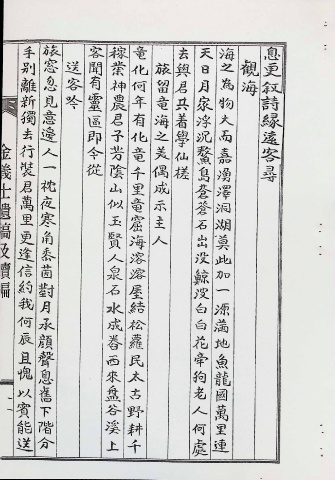 息更叙詩緣遠客尋
觀海
海之為物大而嘉湧澤洞湖莫此加一源滿地魚龍國萬里連
天日月家浮沉鰲島蒼蒼石出没鯨波白白花牽狗老人何處
去與君共着學仙槎
旅留竜海之美偶成示主人
竜化何年有化竜千里竜窟海溶溶屋結松蘿民太古野耕千
稼業神農君子芳陰山似玉賢人泉石水成舂西來盤谷溪上
客聞有靈區即今從
送客吟
旅窓忽見意邊人一枕夜寒角黍茵對月承顔聲息舊下階分
手別離新獨去行裝君萬里更逢信約我何辰且愧以賓能送
金義士遺稿及續編